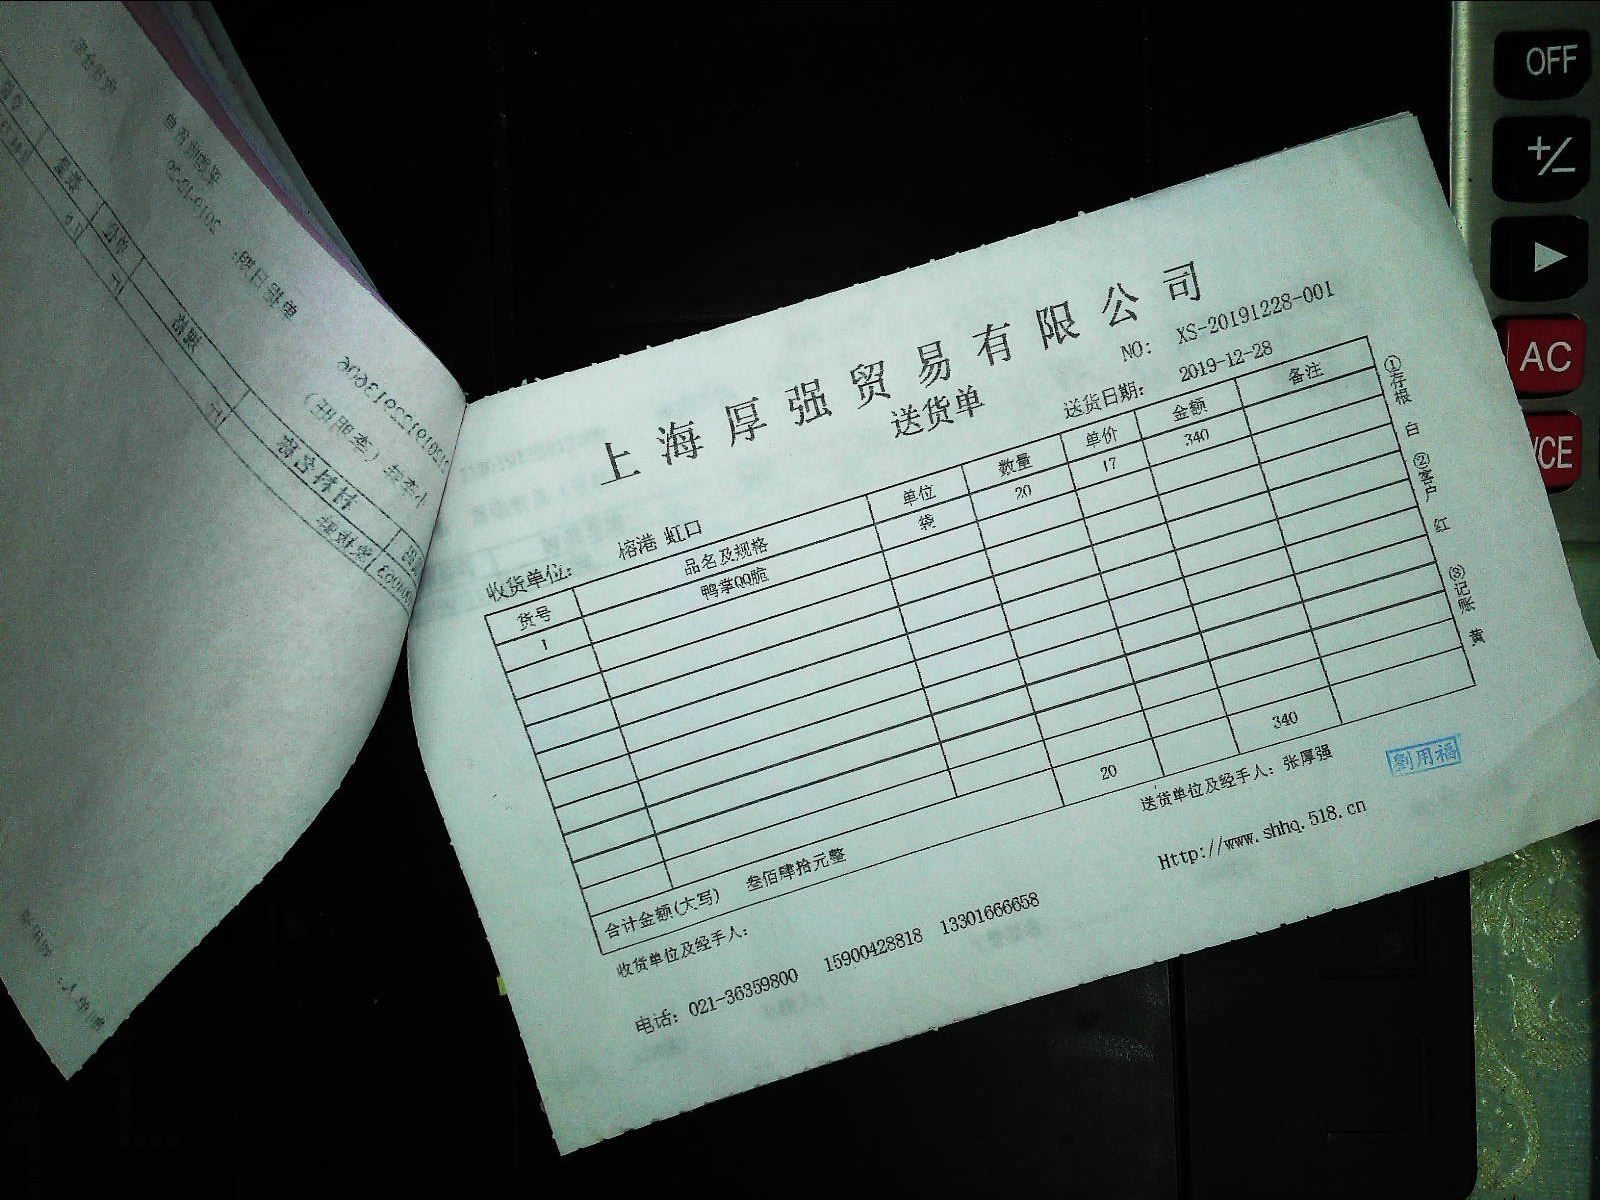 上海厚强贸易有限公司
送货单
NO: XS-20191228-001
收货单位: 榕港 虹口
送货日期: 2019-12-28
货号 品名及规格 单位 数量 单价 金额 备注
1 鸭掌QQ脆 袋 20 17 340
20 340
合计金额(大写) 叁佰肆拾元整
收货单位及经手人:
送货单位及经手人: 张厚强
劉用福
电话: 021-36359800 15900428818 13301666658
Http://www.shhq.518.cn
①存根 白 ②客户 红 ③ 黄
OFF
+/-
▶
AC
/CE